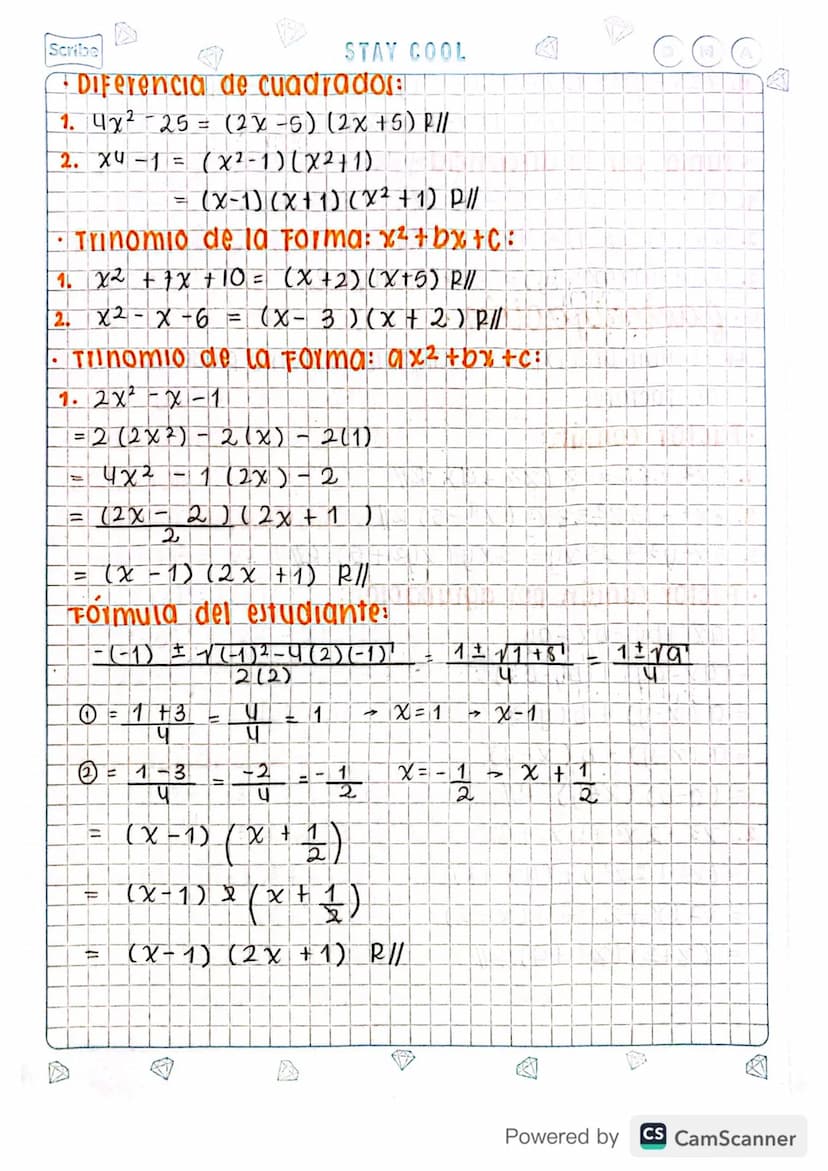 Scribe
STAY COOL
D M A
· Diferencia de cuadrados:
1. 4x² - 25 = (2x - 5) (2x + 5) R//
2. x4 - 1 = (x² - 1) (x² + 1)
= (x-1) (x+1) (x² + 1) R//
· Trinomio de la Forma: x² + bx + c:
1. x² + 7x + 10 = (x + 2) (x+5) R//
2. x² - x - 6 = (x - 3) (x + 2) R//
· Trinomio de la Forma: ax² + bx + c:
1. 2x² - x - 1
= 2 (2x²) - 2 (x) - 2(1)
= 4x² - 1 (2x) - 2
= (2x - 2) (2x + 1)
2
= (x - 1) (2x + 1) R//
Fórmula del estudiante:
-(-1) ± √(-1)² - 4(2)(-1) = 1 ± √1 + 8 = 1 ± √9
2(2) 4 4
① = 1 + 3 = 4 = 1 → x = 1 → x - 1
4 4
② = 1 - 3 = -2 = - 1 x = - 1 → x + 1
4 4 2 2 2
= (x - 1) (x + 1/2)
= (x - 1) 2 (x + 1/2)
= (x - 1) (2x + 1) R//
Powered by CS CamScanner